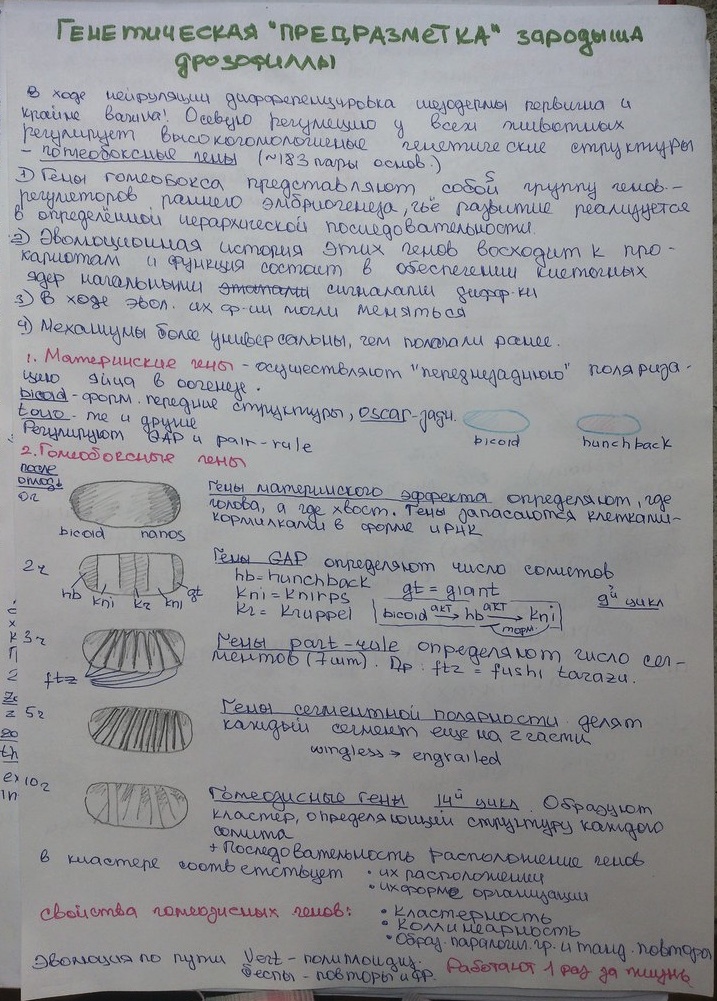 ГЕНЕТИЧЕСКАЯ "ПРЕДРАЗМЕТКА" ЗАРОДЫША
ДРОЗОФИЛЛЫ
В ходе нейруляции дифференцировка мезодермы первична и
крайне важна! Осевую регуляцию у всех животных
регулирует высокогомологичные генетические структуры
- гомеобоксные гены (~183 пары основ.)
1) Гены гомеобокса представляют собой группу генов-
регуляторов раннего эмбриогенеза, чьё развитие реализуется
в определённой иерархической последовательности.
2) Эволюционная история этих генов восходит к про-
кариотам и функция состоит в обеспечении клеточных
ядер начальными сигналами дифф-ки
3) В ходе эвол. их ф-ии могли меняться
4) Механизмы более универсальны, чем полагали ранее.
1. Материнские гены - осуществляют "переднезаднюю" поляриза-
цию яйца в оогенезе.
bicoid - форм. передние структуры, oscar - задн.
- те и другие
Регулируют GAP и pair-rule
bicoid hunchback
2. Гомеобоксные гены
после
оплод.
0ч
bicoid nanos
Гены материнского эффекта определяют, где
голова, а где хвост. Гены запасаются клетками-
кормилками в форме иРНК
2ч
hb kni kr kni gt
Гены GAP определяют число сомитов
hb = hunchback gt = giant
kni = knirps 9й цикл
kr = kruppel bicoid акт→ hb акт→ kni
торм.
3ч
ftz
Гены part-rule определяют число сег-
ментов (7 шт). Пр: ftz = fushi tarazu.
5ч
Гены сегментной полярности делят
каждый сегмент еще на 2 части
wingless → engrailed
10ч
Гомеодисные гены 14й цикл. Образуют
кластер, определяющий структуру каждого
сомита
+ Последовательность расположение генов
в кластере соответствует • их расположении
• их форме организации
Свойства гомеодисных генов: • Кластерность
• Коллинеарность
• Образ. паралогич. гр. и танд. повтора
Эволюция по пути Vert - полиплоидиз.
беспы - повторы и др. Работают 1 раз за жизнь